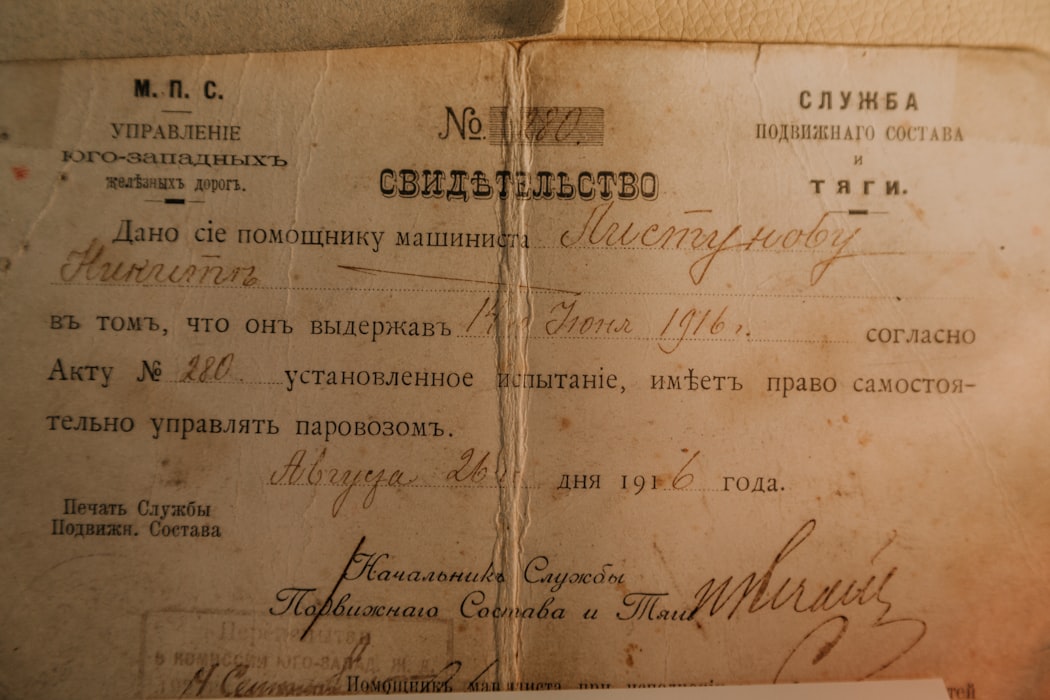 М. П. С.
УПРАВЛЕНІЕ
ЮГО-ЗАПАДНЫХЪ
желѣзныхъ дорогъ.
№ 280.
СЛУЖБА
ПОДВИЖНАГО СОСТАВА
и
ТЯГИ.
СВИДѢТЕЛЬСТВО
Дано сіе помощнику машиниста Пистунову
Никитѣ
въ томъ, что онъ выдержавъ Іюня 1916 г. согласно
Акту № 280 установленное испытаніе, имѣетъ право самостоя-
тельно управлять паровозомъ.
Августа 26 дня 1916 года.
Печать Службы
Подвижн. Состава
Начальникъ Службы
Подвижнаго Состава и Тяги
в комиссіи Юго-Запад. Ж. Д.
Помощникъ машиниста при